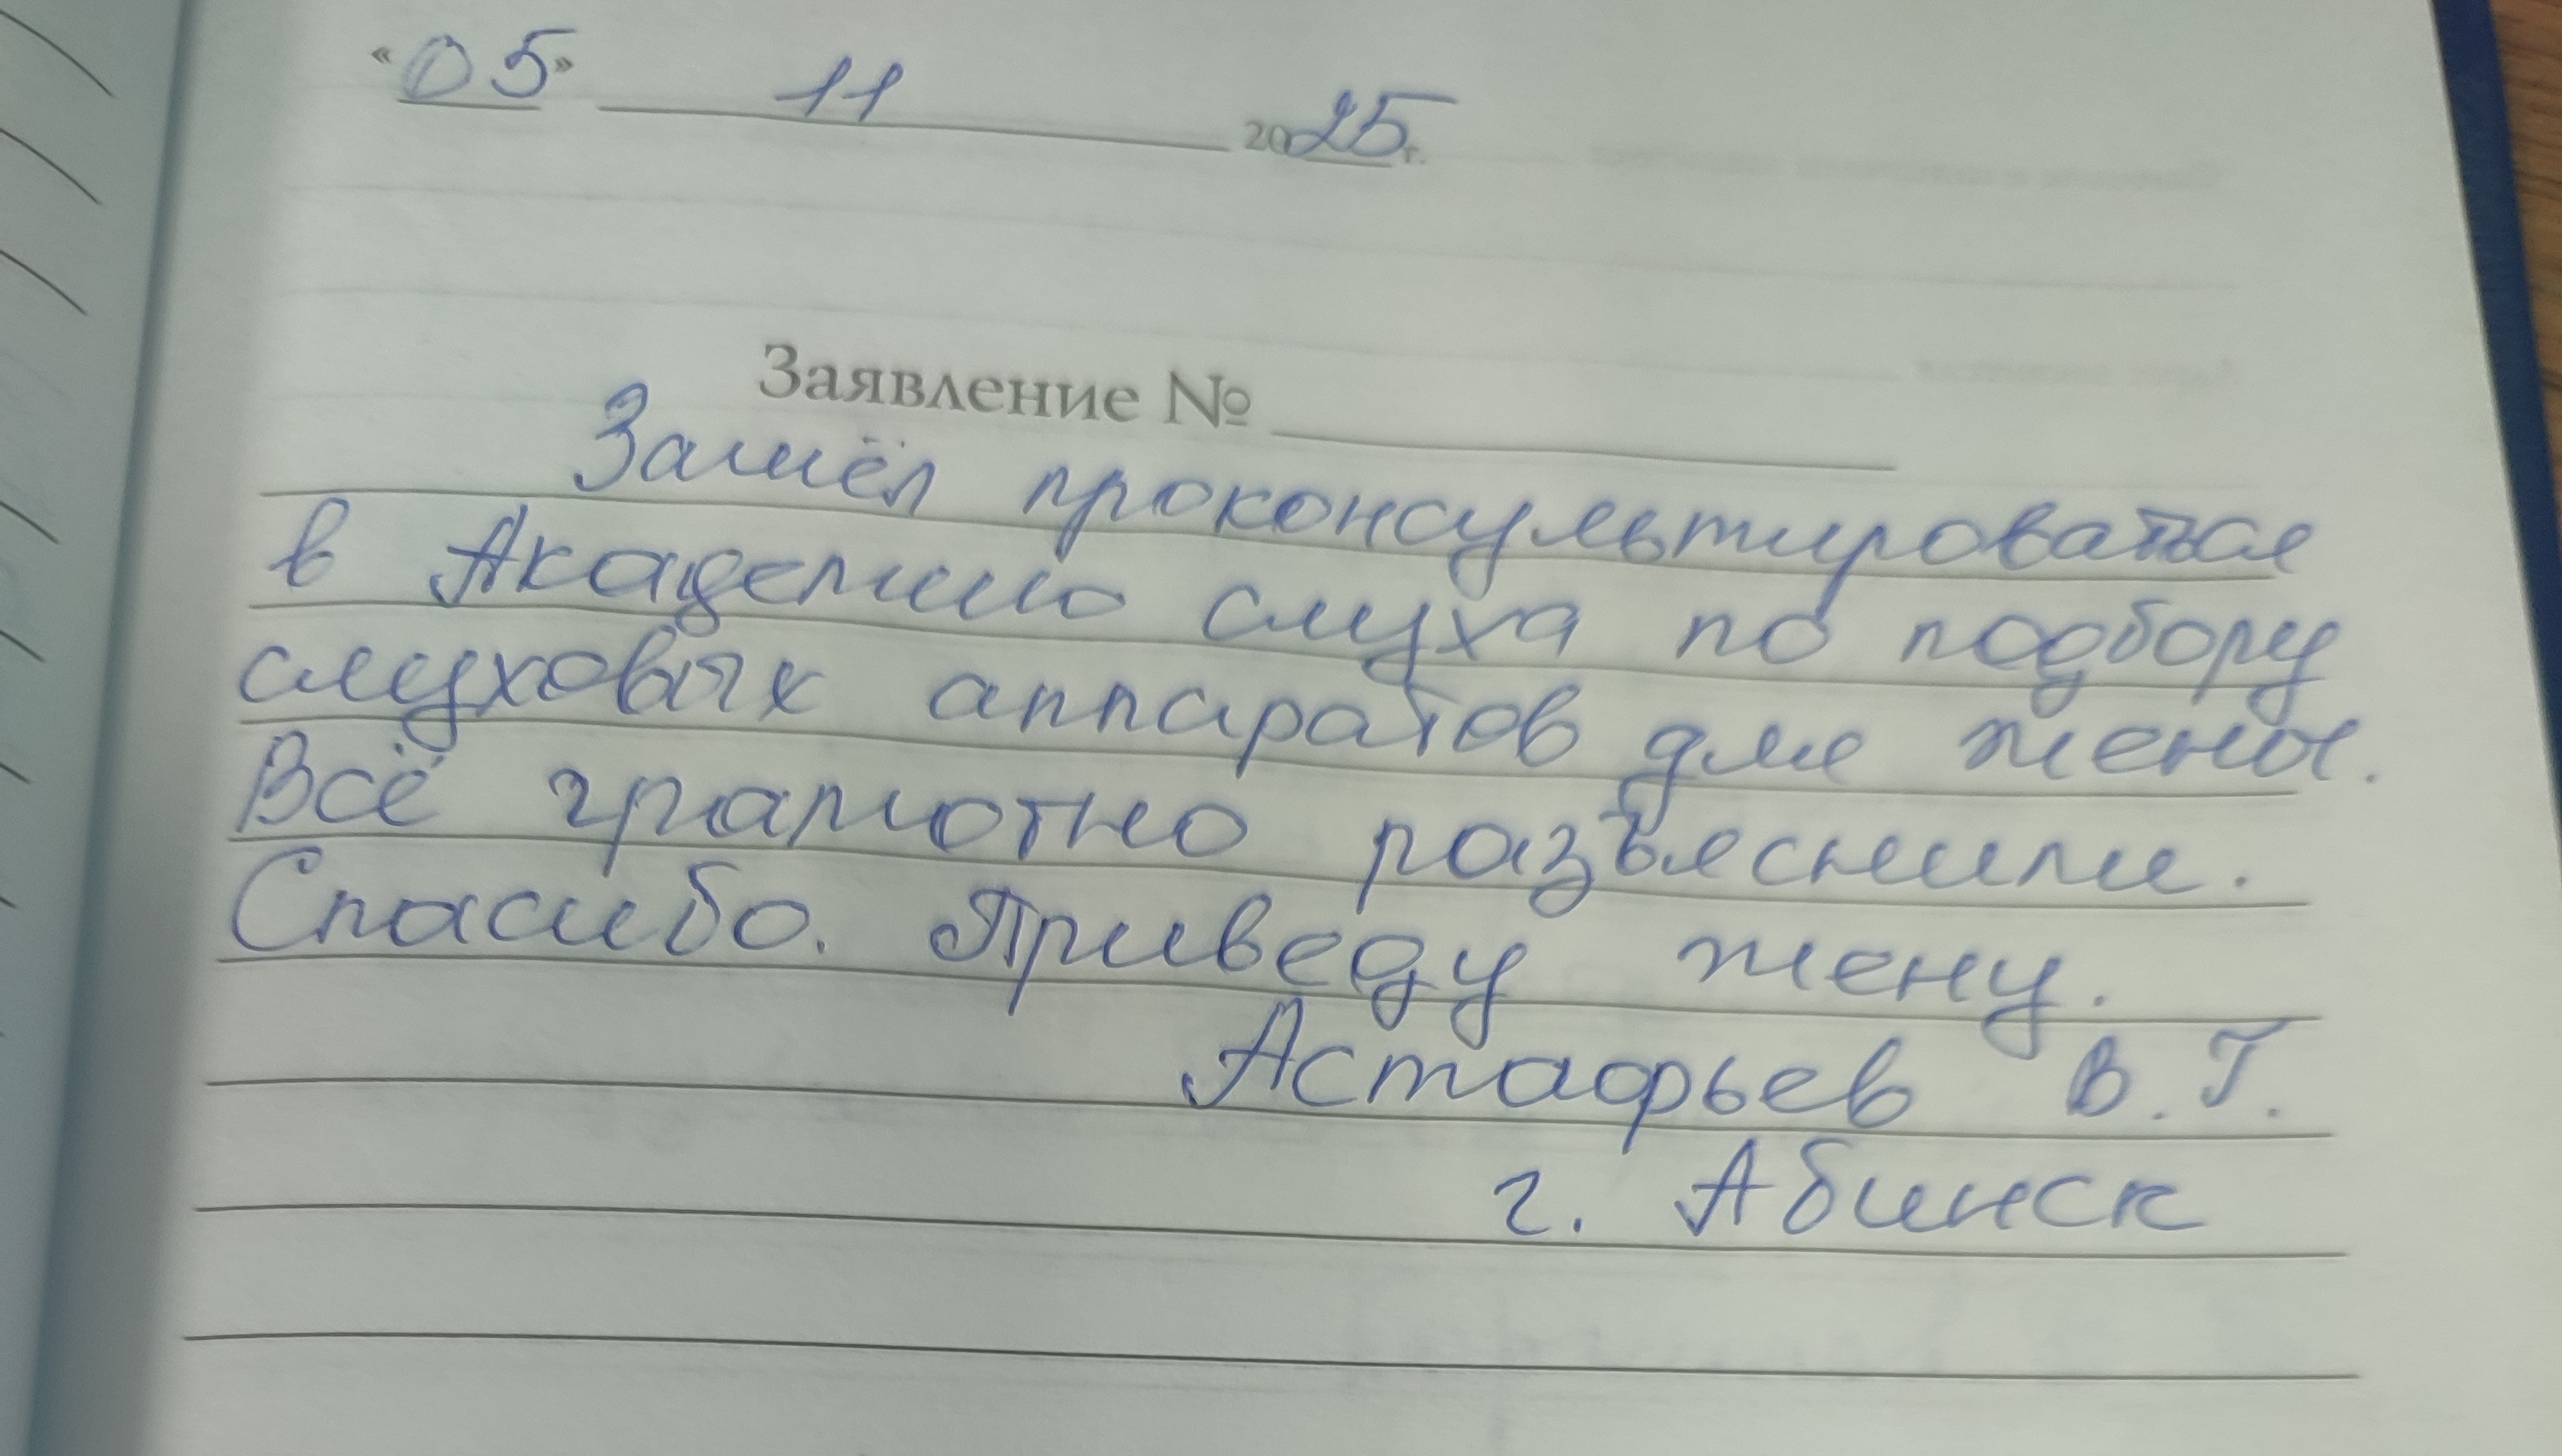 «05» 11 2025 г.
Заявление № 
Зашёл проконсультироваться
в Академию слуха по подбору
слуховых аппаратов для жены.
Всё грамотно разъяснили.
Спасибо. Приведу жену.
Астафьев В.Г.
г. Абинск